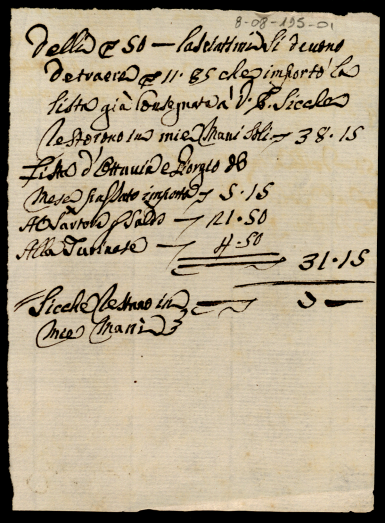 8-08-195-01
Delli 50 — lasciatimi Si devono
detraere 11.85 che importò la
lista già Consegnata à V. S. Sicche
restorono in mie Mani Soli 38.15
Lista d'Ottavia e Giorgio
Mese passato importa 5.15
Al Sartore Saldo — 21.50
Alla Turinese — 4.50
31.15
Sicche restano in
mie Mani